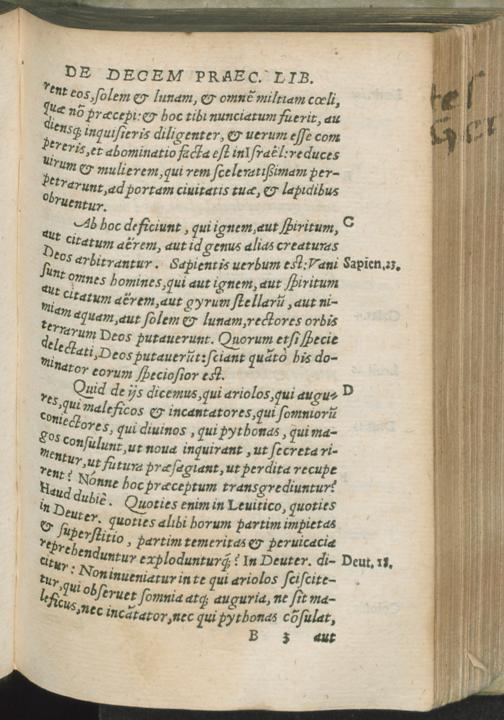 DE DECEM PRAEC. LIB.
rent eos, solem & lunam, & omnē militiam cœli,
quæ nō præcepi: & hoc tibi nunciatum fuerit, au
diensq; inquisieris diligenter, & uerum esse com
pereris, et abominatio facta est in Israël: reduces
uirum & mulierem, qui rem sceleratißimam per-
petrarunt, ad portam ciuitatis tuæ, & lapidibus
obruentur.
Ab hoc deficiunt, qui ignem, aut spiritum, C
aut citatum aërem, aut id genus alias creaturas
Deos arbitrantur. Sapientis uerbum est: Vani Sapien. 23.
sunt omnes homines, qui aut ignem, aut spiritum
aut citatum aërem, aut gyrum stellarū, aut ni-
miam aquam, aut solem & lunam, rectores orbis
terrarum Deos putauerunt. Quorum etsi specie
delectati, Deos putauerūt: sciant quātò his do-
minator eorum speciosior est.
Quid de ijs dicemus, qui ariolos, qui augu- D
res, qui maleficos & incantatores, qui somniorū
coniectores, qui diuinos, qui pythonas, qui ma-
gos consulunt, ut noua inquirant, ut secreta ri-
mentur, ut futura præsagiant, ut perdita recupe
rent? Nonne hoc præceptum transgrediuntur?
Haud dubiè. Quoties enim in Leuitico, quoties
in Deuter. quoties alibi horum partim impietas
& superstitio, partim temeritas & peruicacia
reprehenduntur explodunturq́;? In Deuter. di- Deut. 18.
citur: Non inueniatur in te qui ariolos sciscite-
tur, qui obseruet somnia atq; auguria, ne sit ma-
leficus, nec incātator, nec qui pythonas cōsulat,
B 3 aut